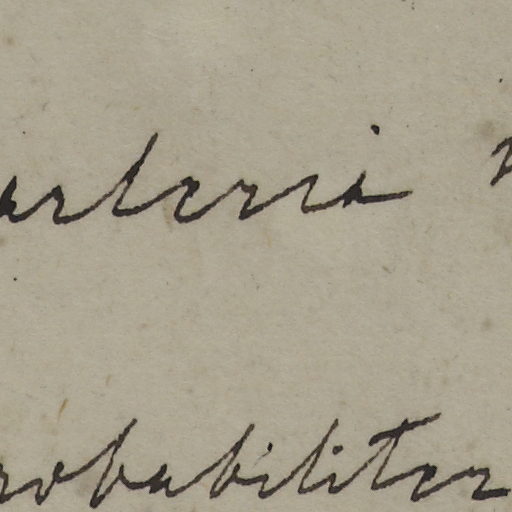 arteria
robabiliter